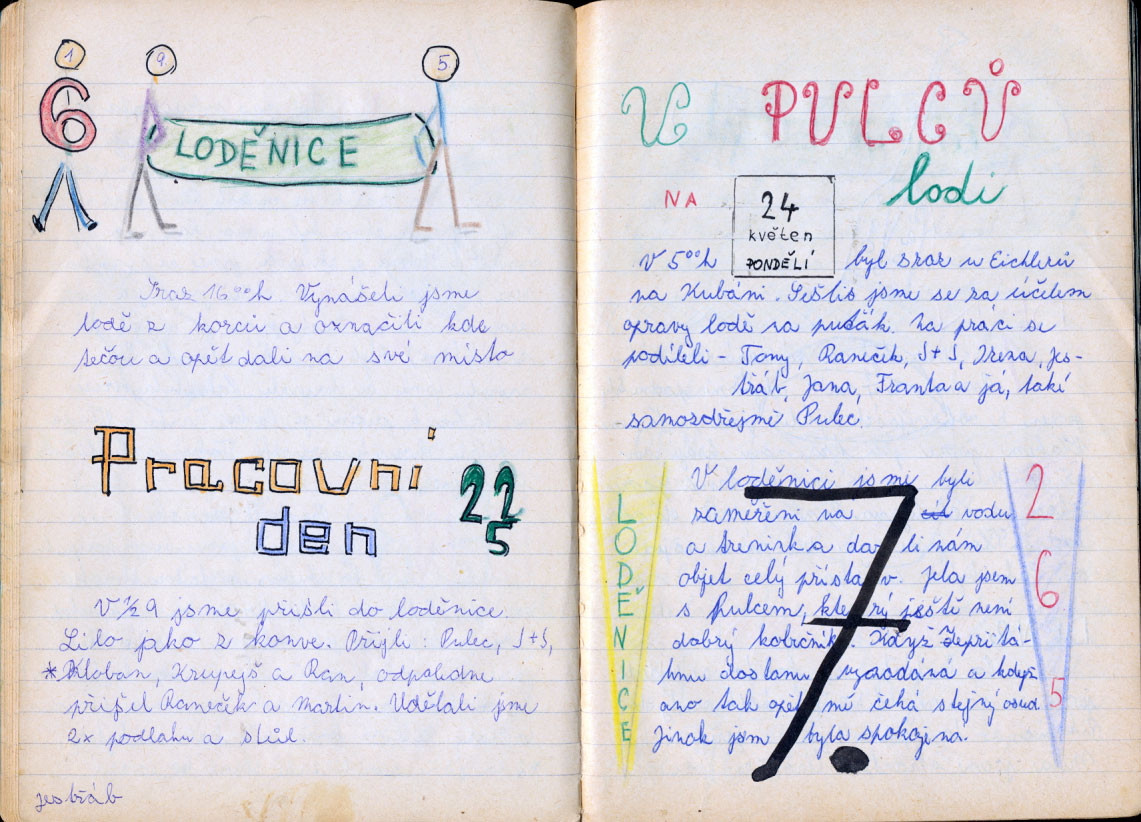 1 9 5
6 LODĚNICE
Sraz 16⁰⁰h Vynášeli jsme
lodě z korcu a označili kde
tečou a opět dali na své místo
Pracovni
den
22
5
V ½ 9 jsme přišli do loděnice.
Lilo jako z konve. Přijli: Pulec, S+S,
*Kloban, Krupejš a Ran, odpoledne
přijel Raneček a Martin. Udělali jsme
2x podlahu a stůl.
jestřáb
U PULCŮ
NA
lodi
24
květen
PONDĚLÍ
V 5⁰⁰h byl sraz u Eichlerů
na Kubáni. Sešlis jsme se za účelem
opravy lodě na puťák. Na práci se
podíleli - Tony, Raneček, S+S, Irena, Jes-
třáb, Jana, Franta a já, také
samozdřejmě Pulec.
LODĚNICE
7.
2
6
5
V loděnici jsme byli
zaměřeni na vodu
a trenink a dařili nám
objet celý přístav. Jela jsem
s Pulcem, který ještě není
dobrý kobrčník. Když že přitá-
hnu dostanu vynadáno a když
ano tak opět mě čeká stejný osud
Jinak jsm byla spokojena.